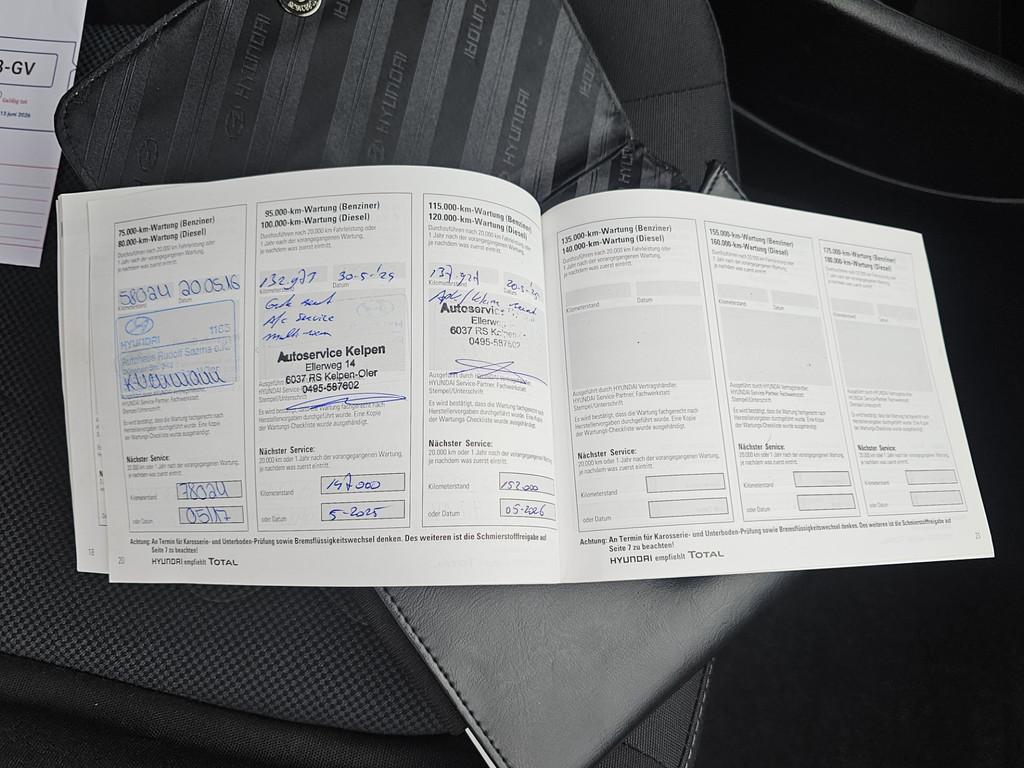 3-GV
Geldig tot
13 juni 2026
HYUNDAI
HYUNDAI
HYUNDAI
HYUNDAI
75.000-km-Wartung (Benziner)
80.000-km-Wartung (Diesel)
Durchzuführen nach 20.000 km Fahrleistung oder
1 Jahr nach der vorangegangenen Wartung,
je nachdem was zuerst eintritt.
58024 20.05.16
Kilometerstand Datum
HYUNDAI 1165
Autohaus Rudolf Sazma e.K.
Stempel/Unterschrift
Es wird bestätigt, dass die Wartung fachgerecht nach
Herstellervorgaben durchgeführt wurde. Eine Kopie
der Wartungs-Checkliste wurde ausgehändigt.
Nächster Service:
20.000 km oder 1 Jahr nach der vorangegangenen Wartung,
je nachdem was zuerst eintritt.
Kilometerstand 78024
oder Datum 05/17
95.000-km-Wartung (Benziner)
100.000-km-Wartung (Diesel)
Durchzuführen nach 20.000 km Fahrleistung oder
1 Jahr nach der vorangegangenen Wartung,
je nachdem was zuerst eintritt.
30-5-'24
Kilometerstand Datum
A/c service
Autoservice Kelpen
Ellerweg 14
6037 RS Kelpen-Oler
0495-587602
Stempel/Unterschrift
Es wird bestätigt, dass die Wartung fachgerecht nach
Herstellervorgaben durchgeführt wurde. Eine Kopie
der Wartungs-Checkliste wurde ausgehändigt.
Nächster Service:
20.000 km oder 1 Jahr nach der vorangegangenen Wartung,
je nachdem was zuerst eintritt.
Kilometerstand 147.000
oder Datum 5-2025
115.000-km-Wartung (Benziner)
120.000-km-Wartung (Diesel)
Durchzuführen nach 20.000 km Fahrleistung oder
1 Jahr nach der vorangegangenen Wartung,
je nachdem was zuerst eintritt.
Kilometerstand Datum
Apk/kleine
Autoservice
Ellerw
6037 RS Kelpen
0495-587602
Ausgeführt durch HYUNDAI Vertragshändler,
HYUNDAI Service-Partner, Fachwerkstatt.
Stempel/Unterschrift
Es wird bestätigt, dass die Wartung fachgerecht nach
Herstellervorgaben durchgeführt wurde. Eine Kopie
der Wartungs-Checkliste wurde ausgehändigt.
Nächster Service:
20.000 km oder 1 Jahr nach der vorangegangenen Wartung,
je nachdem was zuerst eintritt.
Kilometerstand 152.000
oder Datum 05-2026
Achtung: An Termin für Karosserie- und Unterboden-Prüfung sowie Bremsflüssigkeitswechsel denken. Des weiteren ist die Schmierstofffreigabe auf
Seite 7 zu beachten!
18
20 HYUNDAI empfiehlt TOTAL
135.000-km-Wartung (Benziner)
140.000-km-Wartung (Diesel)
Durchzuführen nach 20.000 km Fahrleistung oder
1 Jahr nach der vorangegangenen Wartung,
je nachdem was zuerst eintritt.
Kilometerstand Datum
Ausgeführt durch HYUNDAI Vertragshändler,
HYUNDAI Service-Partner, Fachwerkstatt.
Stempel/Unterschrift
Es wird bestätigt, dass die Wartung fachgerecht nach
Herstellervorgaben durchgeführt wurde. Eine Kopie
der Wartungs-Checkliste wurde ausgehändigt.
Nächster Service:
20.000 km oder 1 Jahr nach der vorangegangenen Wartung,
je nachdem was zuerst eintritt.
Kilometerstand
oder Datum
155.000-km-Wartung (Benziner)
160.000-km-Wartung (Diesel)
Durchzuführen nach 20.000 km Fahrleistung oder
1 Jahr nach der vorangegangenen Wartung,
je nachdem was zuerst eintritt.
Kilometerstand Datum
Ausgeführt durch HYUNDAI Vertragshändler,
HYUNDAI Service-Partner, Fachwerkstatt.
Stempel/Unterschrift
Es wird bestätigt, dass die Wartung fachgerecht nach
Herstellervorgaben durchgeführt wurde. Eine Kopie
der Wartungs-Checkliste wurde ausgehändigt.
Nächster Service:
20.000 km oder 1 Jahr nach der vorangegangenen Wartung,
je nachdem was zuerst eintritt.
Kilometerstand
oder Datum
175.000-km-Wartung (Benziner)
180.000-km-Wartung (Diesel)
Durchzuführen nach 20.000 km Fahrleistung oder
1 Jahr nach der vorangegangenen Wartung,
je nachdem was zuerst eintritt.
Kilometerstand Datum
Ausgeführt durch HYUNDAI Vertragshändler,
HYUNDAI Service-Partner, Fachwerkstatt.
Stempel/Unterschrift
Es wird bestätigt, dass die Wartung fachgerecht nach
Herstellervorgaben durchgeführt wurde. Eine Kopie
der Wartungs-Checkliste wurde ausgehändigt.
Nächster Service:
20.000 km oder 1 Jahr nach der vorangegangenen Wartung,
je nachdem was zuerst eintritt.
Kilometerstand
oder Datum
Achtung: An Termin für Karosserie- und Unterboden-Prüfung sowie Bremsflüssigkeitswechsel denken. Des weiteren ist die Schmierstofffreigabe auf
Seite 7 zu beachten!
HYUNDAI empfiehlt TOTAL
21